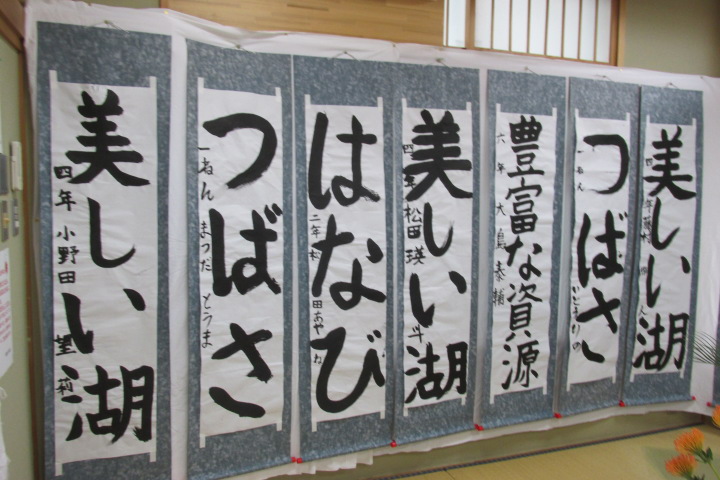 美しい湖
四年
つばさ
一ねん
豊富な資源
六年 大島泰輔
美しい湖
四年 松田瑛斗
はなび
二年 村田あやね
つばさ
一ねん まつだ とうま
美しい湖
四年 小野田 望